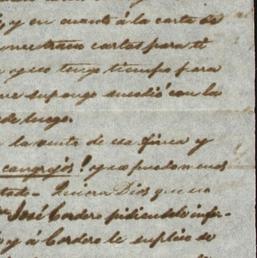 y en cuanto á la carta de
cartas para ti
y no tengo tiempo para
me supongo sucedió con la
luego.
la venta de esa finca y
cangrejos! y no puedo mas
Quiera Dios que no
José Cordero pidiendole infor-
y á Cordero le suplico de